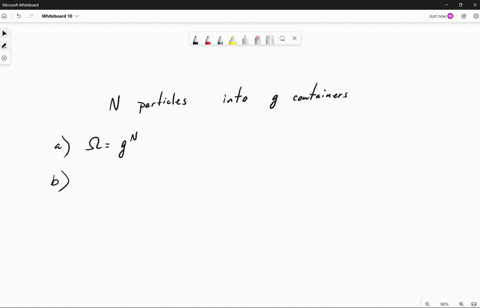 Microsoft Whiteboard
Whiteboard 10
Just now
N particles into g containers
a) Ω = g^N
b)
90%